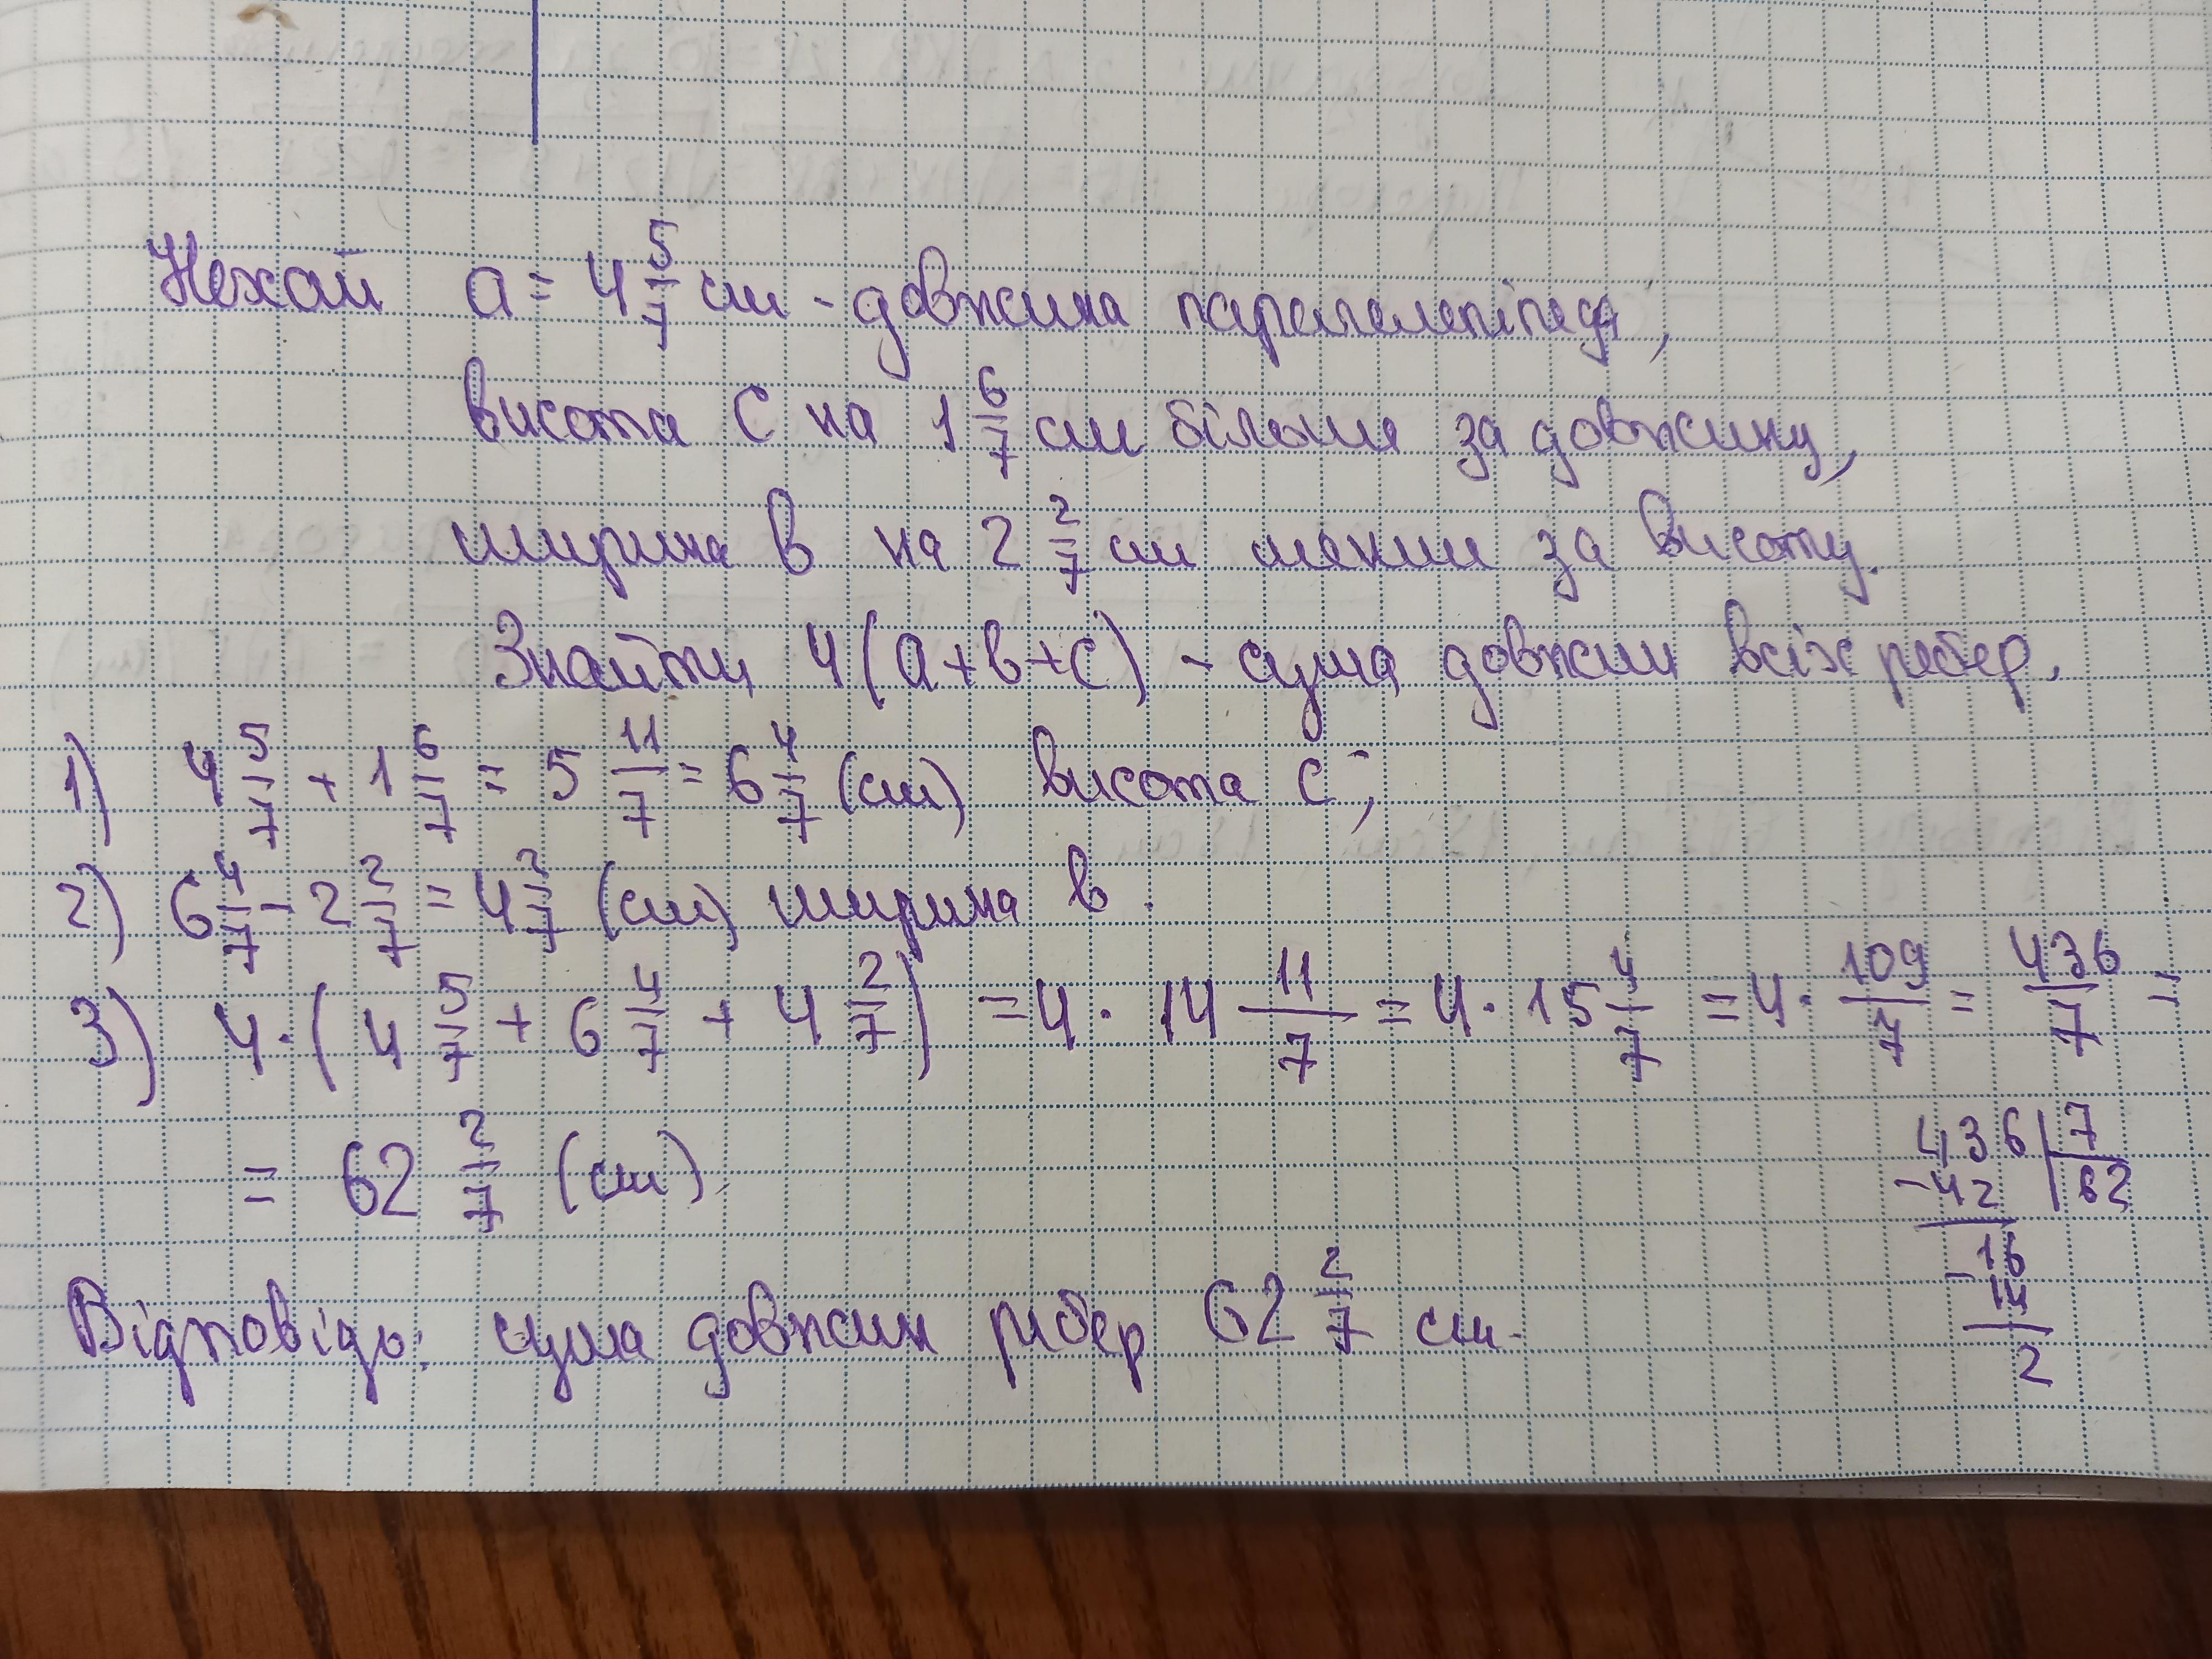 Нехай a = 4 5/7 см - довжина паралелепіпеда,
висота c на 1 6/7 см більше за довжину,
ширина b на 2 2/7 см менше за висоту.
Знайти 4(a+b+c) - сума довжин всіх ребер.
1) 4 5/7 + 1 6/7 = 5 11/7 = 6 4/7 (см) висота c;
2) 6 4/7 - 2 2/7 = 4 2/7 (см) ширина b.
3) 4·(4 5/7 + 6 4/7 + 4 2/7) = 4·14 11/7 = 4·15 4/7 = 4·109/7 = 436/7 =
= 62 2/7 (см)
436 | 7
-42 | 62
-16
14
2
Відповідь: сума довжин ребер 62 2/7 см.